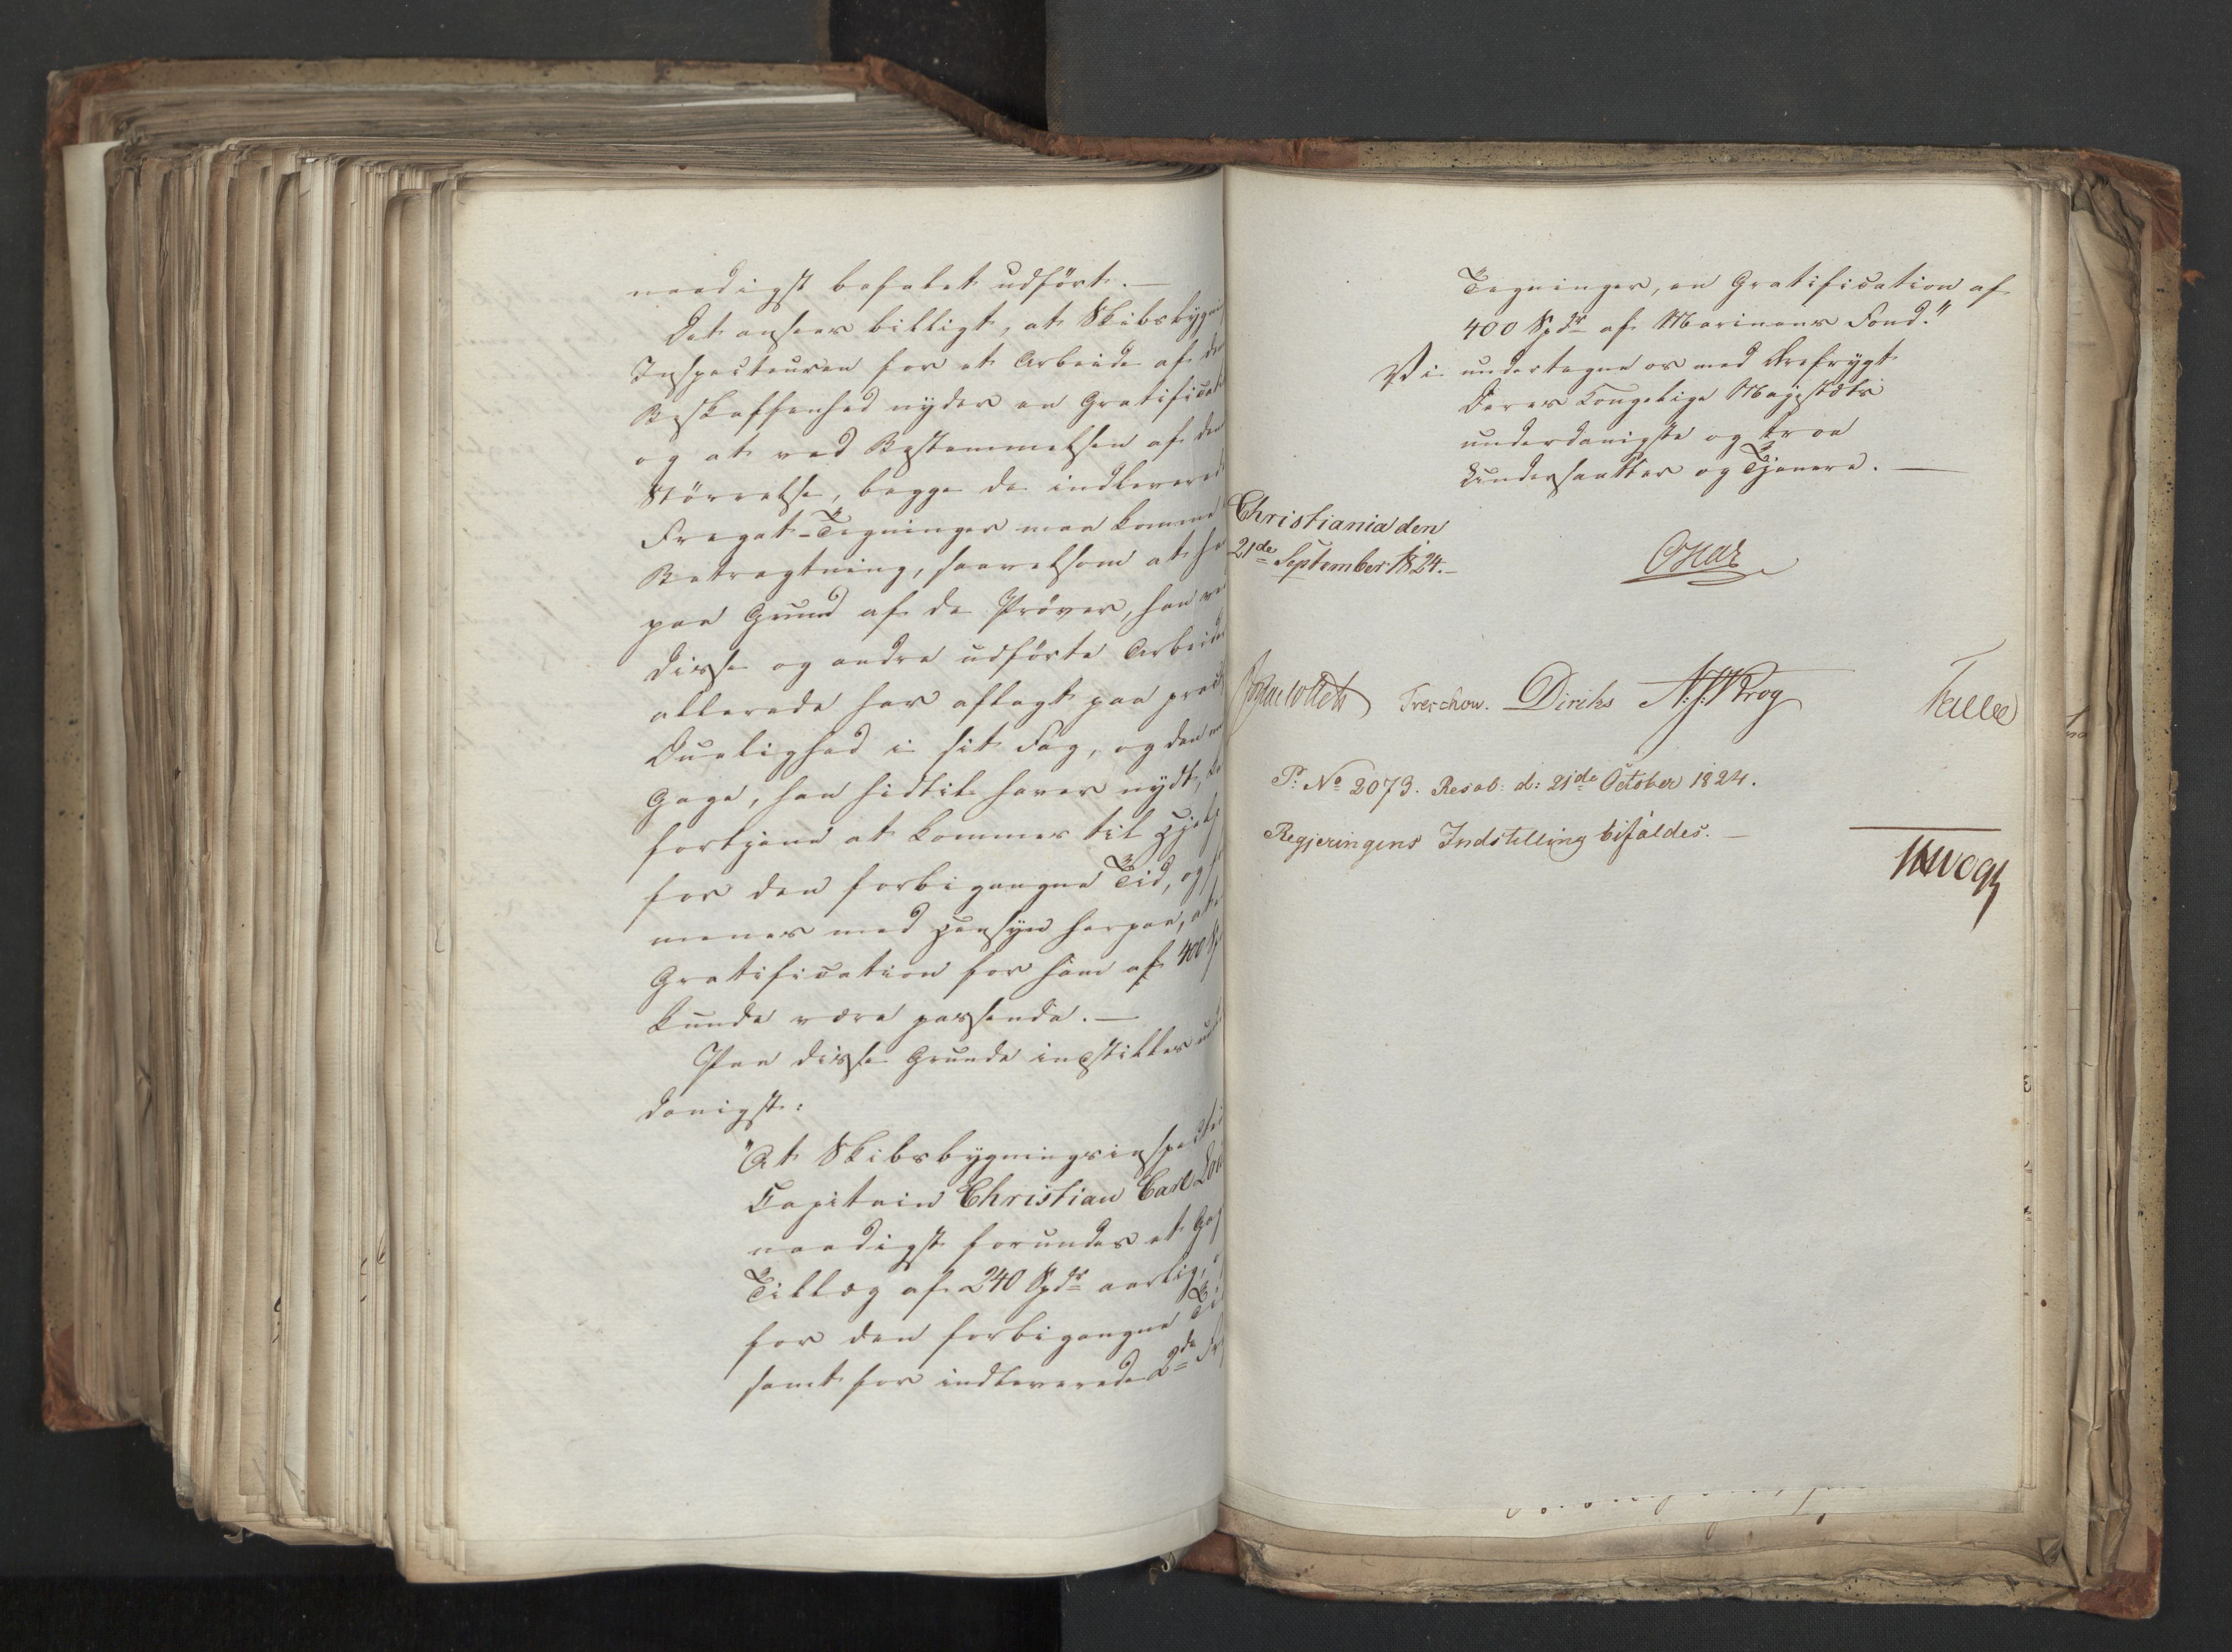 naadigst befalet udført. —
Det ansees billigt, at Skibsbygnings
Inspecteuren for et Arbeide af den
Beskaffenhed nyder en Gratification
og at ved Bestemmelsen af den
Størrelse, begge de indleverede
Fregat-Tegninger maa komme i
Betragtning, saavelsom at han
paa Grund af de Prøver, han ved
disse og andre udførte Arbeider
allerede har aflagt paa
Duelighed i sit Fag, og den
Gage, han hidtil haver nydt,
fortjene at kommes til Hjelp
for den forbigangne Tid, og
menes med Hensyn herpaa, at
Gratification for ham af 400
kunde være passende. —
Paa disse Grunde indstilles under
danigst:
"At Skibsbygningsinspecteur
Capitain Christian Carl
naadigst forundes et Gage
Tillæg af 240 Spdr aarlig,
for den forbigangne Tid
samt for indleverede 2de
Tegninger, en Gratification af
400 Spdr af Marinens Fond."
Vi undertegne os med Ærefrygt
Deres Kongelige Majestæts
underdanigste og troe
Undersaatter og Tjenere. —
Christiania den
21de September 1824. —
Oscar
Treschow. Diriks Krog
P: No 2073. Resol: d: 21de October 1824.
Regjeringens Indstilling bifaldes. —